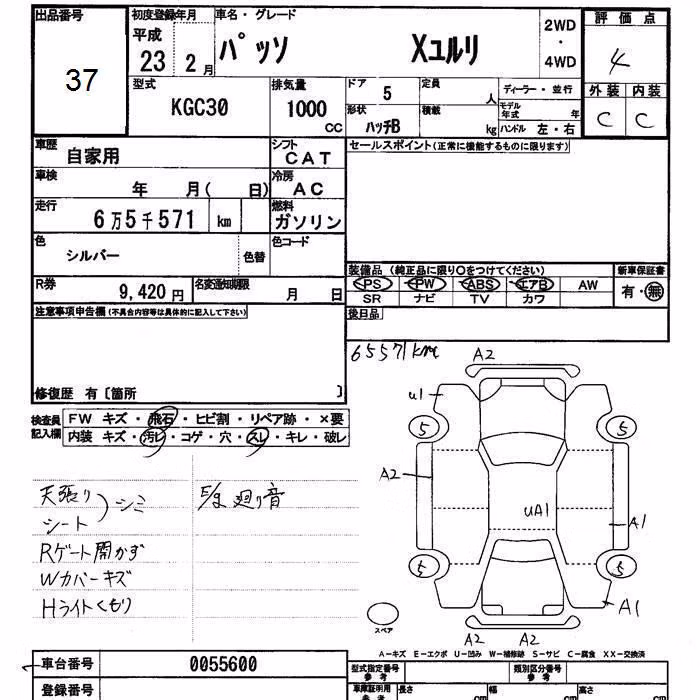 出品番号
37
初度登録年月
平成
23 2月
車名・グレード
パッソ Xユルリ
2WD
・
4WD
評価点
4
外装 内装
C C
型式
KGC30
排気量
1000
CC
ドア
5
形状
ハッチB
定員
人
積載
kg
ディーラー・並行
モデル年式 年
ハンドル 左・右
車歴
自家用
シフト
CAT
車検
年 月( 日)
冷房
AC
走行
6万5千571 km
燃料
ガソリン
色
シルバー
色替
色コード
R券
9,420円
名変通知期限
月 日
セールスポイント(正常に機能するものに限ります)
装備品 (純正品に限り○をつけてください)
PS PW ABS エアB AW
SR ナビ TV カワ
新車保証書
有・無
後日品
注意事項申告欄(不具合内容等は具体的に記入して下さい)
修復歴 有〔箇所 〕
検査員
記入欄
FW キズ・飛石・ヒビ割・リペア跡・×要
内装 キズ・汚レ・コゲ・穴・スレ・キレ・破レ
天張り
シート
シミ
Rゲート開かず
Wカバーキズ
Hライトくもり
廻り音
65571km
A2
u1
5
5
A2
uA1
A1
5
5
A1
A2 A2
スペア
A-キズ E-エクボ U-凹み W-補修跡 S-サビ C-腐食 XX-交換済
車台番号
0055600
登録番号
型式指定番号
参考
類別区分番号
参考
車庫証明用
参考
長さ cm
幅 cm
高さ cm